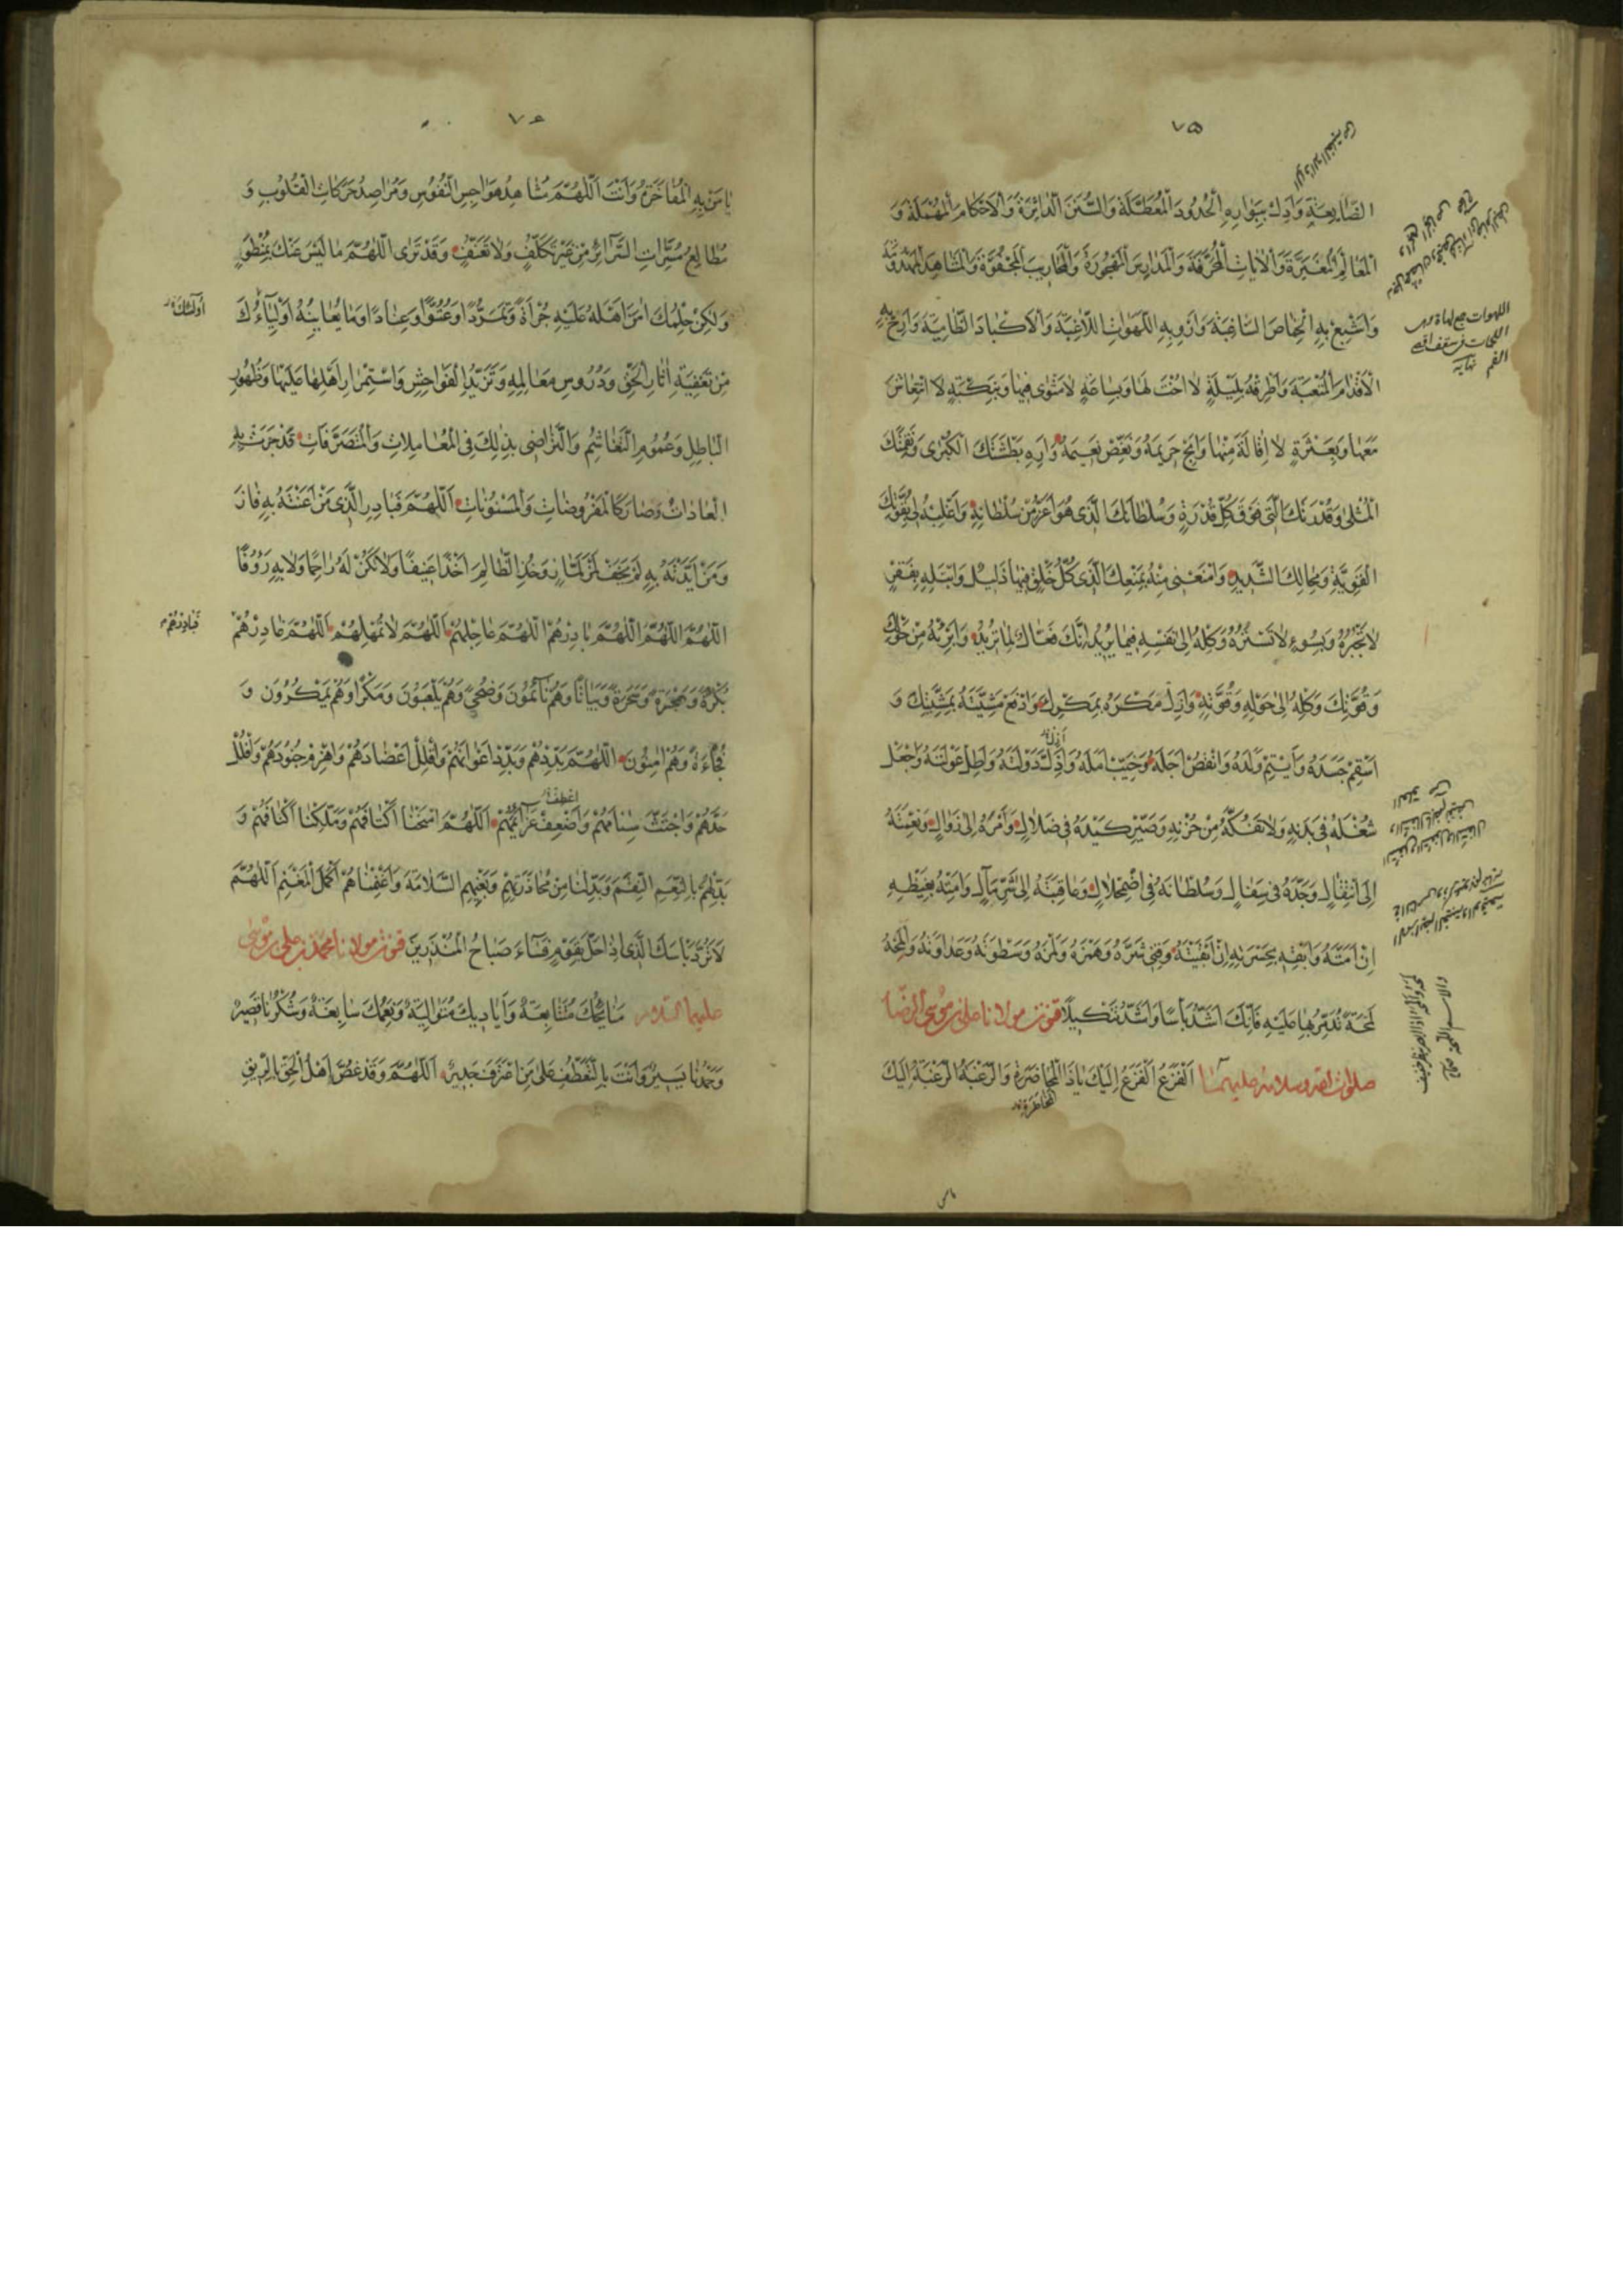 ٧٥
الضَّايِعَةِ وَاَدِلْ بِبَوَارِهِ الْحُدُودَ الْمُعَطَّلَةَ وَالسُّنَنَ الدّٰاثِرَةَ وَالْاَحْكٰامَ الْمُهْمَلَةَ وَ
الْمَعٰالِمَ الْمُغَيَّرَةَ وَالْاٰيٰاتِ الْمُحَرَّفَةَ وَالْمَدٰارِسَ الْمَهْجُورَةَ وَالْمَحٰارِيبَ الْمَجْفُوَّةَ وَالْمَشٰاهِدَ الْمَهْدُومَةَ
وَاَشْبِعْ بِهِ الْخِمٰاصَ السّٰاغِبَةَ وَاَرْوِ بِهِ اللَّهَوٰاتِ اللّٰاغِبَةَ وَالْاَكْبٰادَ الظّٰامِيَةَ وَاَرِحْ بِهِ
الْاَقْدٰامَ الْمُتْعَبَةَ وَاطْرُقْهُ بِلَيْلَةٍ لٰا اُخْتَ لَهٰا وَبِسٰاعَةٍ لٰا مَثْوٰى فِيهٰا وَبِنَكْبَةٍ لٰا انْتِعٰاشَ
مَعَهٰا وَبِعَثْرَةٍ لٰا اِقٰالَةَ مِنْهٰا وَاَبِحْ حَرِيمَهُ وَنَغِّصْ نَعِيمَهُ وَاَرِهِ بَطْشَتَكَ الْكُبْرٰى وَنَقِمَتَكَ
الْمُثْلٰى وَقُدْرَتَكَ الَّتِي فَوْقَ كُلِّ قُدْرَةٍ وَسُلْطٰانَكَ الَّذِي هُوَ اَعَزُّ مِنْ سُلْطٰانِهِ وَاغْلِبْهُ لِي بِقُوَّتِكَ
الْقَوِيَّةِ وَمِحٰالِكَ الشَّدِيدِ وَامْنَعْنِي مِنْهُ بِمَنْعِكَ الَّذِي كُلُّ خَلْقٍ فِيهٰا ذَلِيلٌ وَابْتَلِهِ بِفَقْرٍ
لٰا تَجْبُرُهُ وَبِسُوءٍ لٰا تَسْتُرُهُ وَكِلْهُ اِلٰى نَفْسِهِ فِيمٰا يُرِيدُ اِنَّكَ فَعّٰالٌ لِمٰا تُرِيدُ وَابْرِئْهُ مِنْ حَوْلِكَ
وَقُوَّتِكَ وَكِلْهُ اِلٰى حَوْلِهِ وَقُوَّتِهِ وَاَزِلْ مَكْرَهُ بِمَكْرِكَ وَادْفَعْ مَشِيَّتَهُ بِمَشِيَّتِكَ وَ
اَسْقِمْ جَسَدَهُ وَاَيْتِمْ وَلَدَهُ وَانْقُصْ اَجَلَهُ وَخَيِّبْ اَمَلَهُ وَاَذِلَّ دَوْلَتَهُ وَاَطِلْ عَوْلَتَهُ وَاجْعَلْ
شُغْلَهُ فِي بَدَنِهِ وَلٰا تَفُكَّهُ مِنْ حُزْنِهِ وَصَيِّرْ كَيْدَهُ فِي ضَلٰالٍ وَاَمْرَهُ اِلٰى زَوٰالٍ وَنِعْمَتَهُ
اِلَى انْتِقٰالٍ وَجَدَّهُ فِي سِفٰالٍ وَسُلْطٰانَهُ فِي اضْمِحْلٰالٍ وَعٰاقِبَتَهُ اِلٰى شَرِّ مَاٰلٍ وَاَمِتْهُ بِغَيْظِهِ
اِنْ اَمَتَّهُ وَاَبْقِهِ بِحَسْرَتِهِ اِنْ اَبْقَيْتَهُ وَقِنِي شَرَّهُ وَهَمْزَهُ وَلَمْزَهُ وَسَطْوَتَهُ وَعَدٰاوَتَهُ وَالْمَحْهُ
لَمْحَةً تُدَمِّرُ بِهٰا عَلَيْهِ فَاِنَّكَ اَشَدُّ بَأْسًا وَاَشَدُّ تَنْكِيلًا قنوت مولانا علي بن موسى الرضا
صلوات الله وسلامه عليهما اَلْفَزَعَ اَلْفَزَعَ اِلَيْكَ يٰا ذَا الْمُحٰاضَرَةِ وَالرَّغْبَةَ الرَّغْبَةَ اِلَيْكَ
اللهوات جمع لهاة وهى
اللحمات فى سقف اقصى
الفم نهاية
٧٦
يٰا مَنْ بِهِ الْمُفٰاخَرَةُ وَاَنْتَ اللّٰهُمَّ مُشٰاهِدُ هَوٰاجِسِ النُّفُوسِ وَمُرٰاصِدُ حَرَكٰاتِ الْقُلُوبِ وَ
مُطٰالِعُ مَسَرّٰاتِ السَّرٰائِرِ مِنْ غَيْرِ تَكَلُّفٍ وَلٰا تَعَسُّفٍ وَقَدْ تَرٰى اللّٰهُمَّ مٰا لَيْسَ عَنْكَ بِمُنْطَوٍ
وَلٰكِنْ حِلْمُكَ اٰمَنَ اَهْلَهُ عَلَيْهِ جُرْاَةً وَتَمَرُّدًا وَعُتُوًّا وَعِنٰادًا وَمٰا يُعٰانِيهِ اَوْلِيٰاؤُكَ
مِنْ تَعْفِيَةِ اٰثٰارِ الْحَقِّ وَدُرُوسِ مَعٰالِمِهِ وَتَزَيُّدِ الْفَوٰاحِشِ وَاسْتِمْرٰارِ اَهْلِهٰا عَلَيْهٰا وَظُهُورِ
الْبٰاطِلِ وَعُمُومِ التَّغٰاشُمِ وَالتَّرٰاضِي بِذٰلِكَ فِي الْمُعٰامَلٰاتِ وَالْمُتَصَرَّفٰاتِ قَدْ جَرَتْ بِهِ
الْعٰادٰاتُ وَصٰارَ كَالْمَفْرُوضٰاتِ وَالْمَسْنُونٰاتِ اَللّٰهُمَّ فَبٰادِرِ الَّذِي مَنْ اَعَنْتَهُ بِهِ فٰازَ
وَمَنْ اَيَّدْتَهُ بِهِ لَمْ يَخَفْ لَمْزَ لَمّٰازٍ وَخُذِ الظّٰالِمَ اَخْذًا عَنِيفًا وَلٰا تَكُنْ لَهُ رٰاحِمًا وَلٰا بِهِ رَؤُوفًا
اللّٰهُمَّ اللّٰهُمَّ اللّٰهُمَّ بٰادِرْهُمْ اللّٰهُمَّ عٰاجِلْهُمْ اَللّٰهُمَّ لٰا تُمْهِلْهُمْ اَللّٰهُمَّ غٰادِرْهُمْ
بُكْرَةً وَهَجْرَةً وَسُحْرَةً وَبَيٰاتًا وَهُمْ نٰائِمُونَ وَضُحًى وَهُمْ يَلْعَبُونَ وَمَكْرًا وَهُمْ يَمْكُرُونَ وَ
فُجْاَةً وَهُمْ اٰمِنُونَ اللّٰهُمَّ بَدِّدْهُمْ وَبَدِّدْ اَعْوٰانَهُمْ وَافْلُلْ اَعْضٰادَهُمْ وَاهْزِمْ جُنُودَهُمْ وَافْلُلْ
حَدَّهُمْ وَاجْتَثَّ سَنٰامَهُمْ وَاَضْعِفْ عَزٰائِمَهُمْ اَللّٰهُمَّ امْنَحْنٰا اَكْتٰافَهُمْ وَمَلِّكْنٰا اَكْنٰافَهُمْ وَ
بَدِّلْهُمْ بِالنِّعَمِ النِّقَمَ وَبَدِّلْنٰا مِنْ مُحٰاذَرَتِهِمْ وَبَغْيِهِمُ السَّلٰامَةَ وَاَغْنِمْنٰاهُمْ اَكْمَلَ الْمَغْنَمِ اَللّٰهُمَّ
لٰا تَرُدَّ بَأْسَكَ الَّذِي اِذٰا حَلَّ بِقَوْمٍ فَسٰاءَ صَبٰاحُ الْمُنْذَرِينَ قنوت مولانا محمد بن علي بن موسى
عليهما السلام مَنٰائِحُكَ مُتَتٰابِعَةٌ وَاَيٰادِيكَ مُتَوٰالِيَةٌ وَنِعَمُكَ سٰابِغَةٌ وَشُكْرُنٰا قَصِيرٌ
وَحَمْدُنٰا يَسِيرٌ وَاَنْتَ بِالتَّعَطُّفِ عَلٰى مَنِ اعْتَرَفَ جَدِيرٌ اَللّٰهُمَّ وَقَدْ غُصَّ اَهْلُ الْحَقِّ بِالرِّيقِ